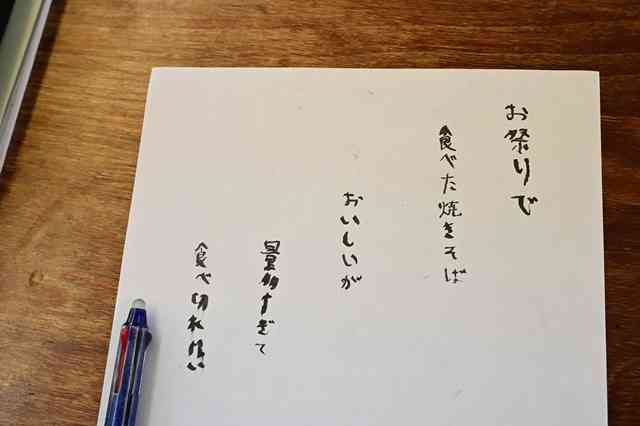 お祭りで
食べた焼きそば
おいしいが
量多すぎて
食べ切れない